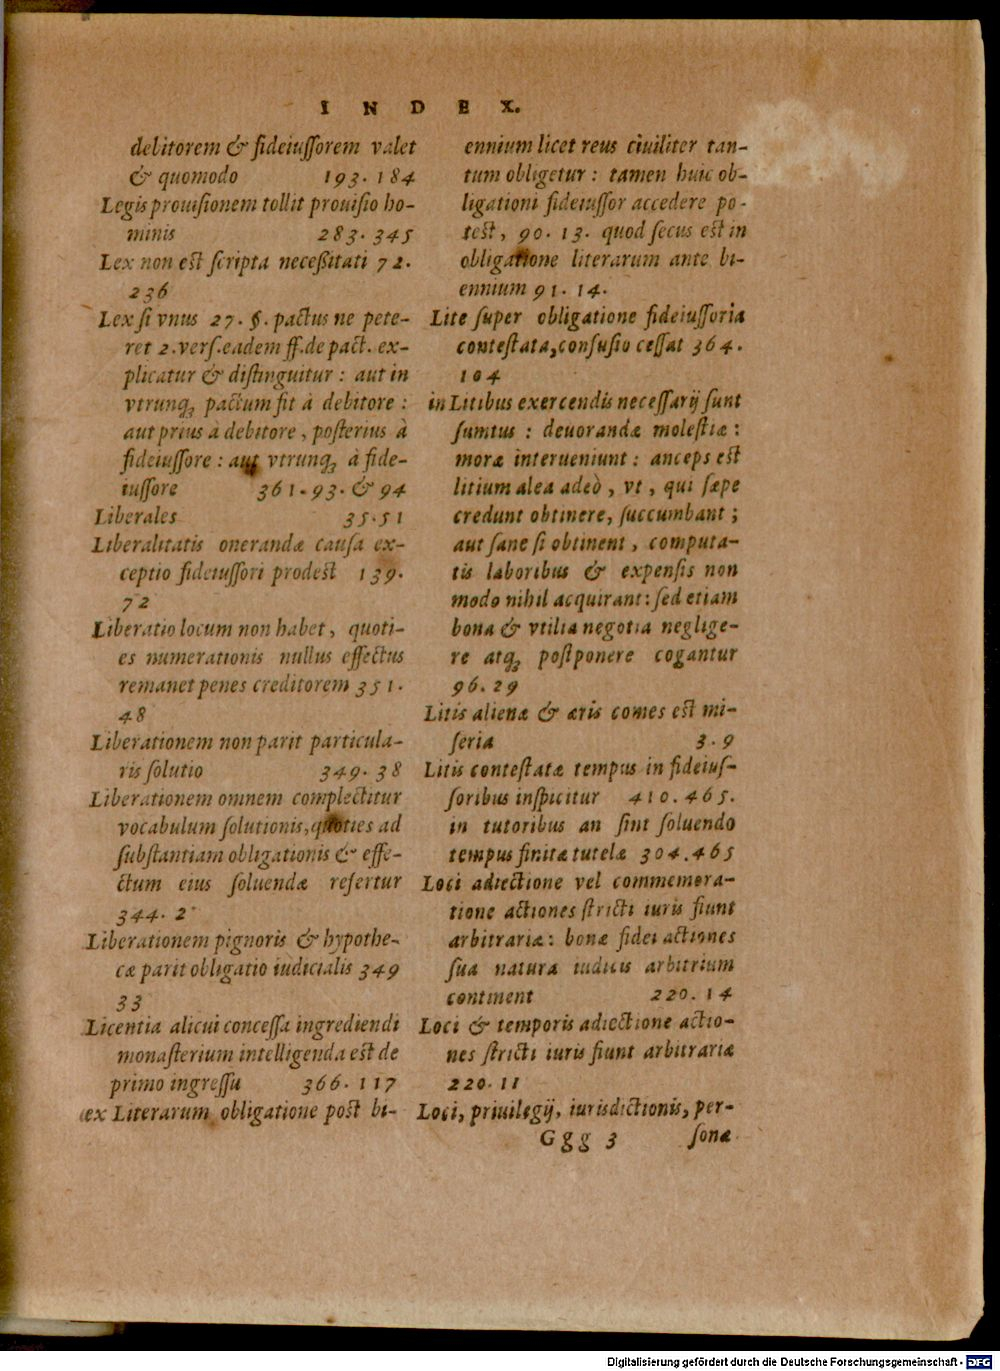 INDEX.
debitorem & fideiussorem valet
& quomodo 193. 184
Legis prouisionem tollit prouisio ho-
minis 283. 345
Lex non est scripta necessitati 72.
236
Lex si vnus 27. §. pactus ne pete-
ret 2. vers. eadem ff. de pact. ex-
plicatur & distinguitur: aut in
vtrunq; pactum fit à debitore:
aut prius à debitore, posterius à
fideiussore: aut vtrunq; à fide-
iussore 361. 93. & 94
Liberales 35. 51
Liberalitatis onerandæ causa ex-
ceptio fideiussori prodest 139.
72
Liberatio locum non habet, quoti-
es numerationis nullus effectus
remanet penes creditorem 351.
48
Liberationem non parit particula-
ris solutio 349. 38
Liberationem omnem complectitur
vocabulum solutionis, quoties ad
substantiam obligationis & effe-
ctum eius soluendæ refertur
344. 2
Liberationem pignoris & hypothe-
cæ parit obligatio iudicialis 349
33
Licentia alicui concessa ingrediendi
monasterium intelligenda est de
primo ingressu 366. 117
ex Literarum obligatione post bi-
ennium licet reus ciuiliter tan-
tum obligetur: tamen huic ob-
ligationi fideiussor accedere po-
test, 90. 13. quod secus est in
obligatione literarum ante bi-
ennium 91. 14.
Lite super obligatione fideiussoria
contestata, confusio cessat 364.
104
in Litibus exercendis necessarij sunt
sumtus: deuorandæ molestiæ:
moræ interueniunt: anceps est
litium alea adeò, vt, qui sæpe
credunt obtinere, succumbant;
aut sane si obtinent, computa-
tis laboribus & expensis non
modo nihil acquirant: sed etiam
bona & vtilia negotia neglige-
re atq; postponere cogantur
96. 29
Litis alienæ & æris comes est mi-
seria 3. 9
Litis contestatæ tempus in fideius-
soribus inspicitur 410. 465.
in tutoribus an sint soluendo
tempus finitæ tutelæ 304. 465
Loci adiectione vel commemora-
tione actiones stricti iuris fiunt
arbitrariæ: bonæ fidei actiones
sua natura iudicis arbitrium
continent 220. 14
Loci & temporis adiectione actio-
nes stricti iuris fiunt arbitrariæ
220. 11
Loci, priuilegij, iurisdictionis, per-
Ggg 3 sonæ
Digitalisierung gefördert durch die Deutsche Forschungsgemeinschaft - DFG